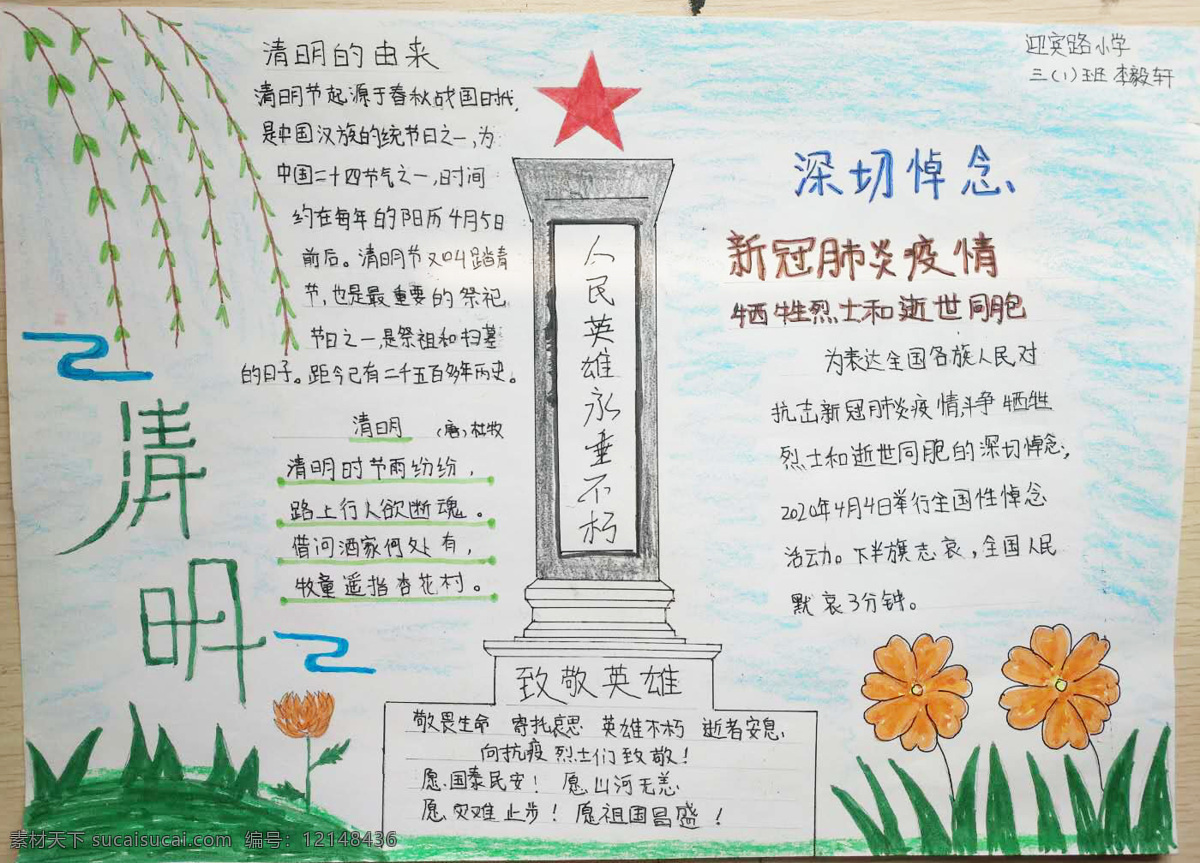 迎宾路小学
三(1)班 李毅轩
清明的由来
清明节起源于春秋战国时代,
是中国汉族的统节日之一,为
中国二十四节气之一,时间
约在每年的阳历4月5日
前后。清明节又叫踏青
节,也是最重要的祭祀
节日之一,是祭祖和扫墓
的日子。距今已有二千五百多年历史。
清明 (唐)杜牧
清明时节雨纷纷,
路上行人欲断魂。
借问酒家何处有,
牧童遥指杏花村。
清明
人民英雄永垂不朽
深切悼念
新冠肺炎疫情
牺牲烈士和逝世同胞
为表达全国各族人民对
抗击新冠肺炎疫情斗争牺牲
烈士和逝世同胞的深切悼念,
2020年4月4日举行全国性悼念
活动。下半旗志哀,全国人民
默哀3分钟。
致敬英雄
敬畏生命 寄托哀思 英雄不朽 逝者安息
向抗疫烈士们致敬!
愿国泰民安! 愿山河无恙
愿灾难止步! 愿祖国昌盛!
素材天下 sucaisucai.com 编号:12148436